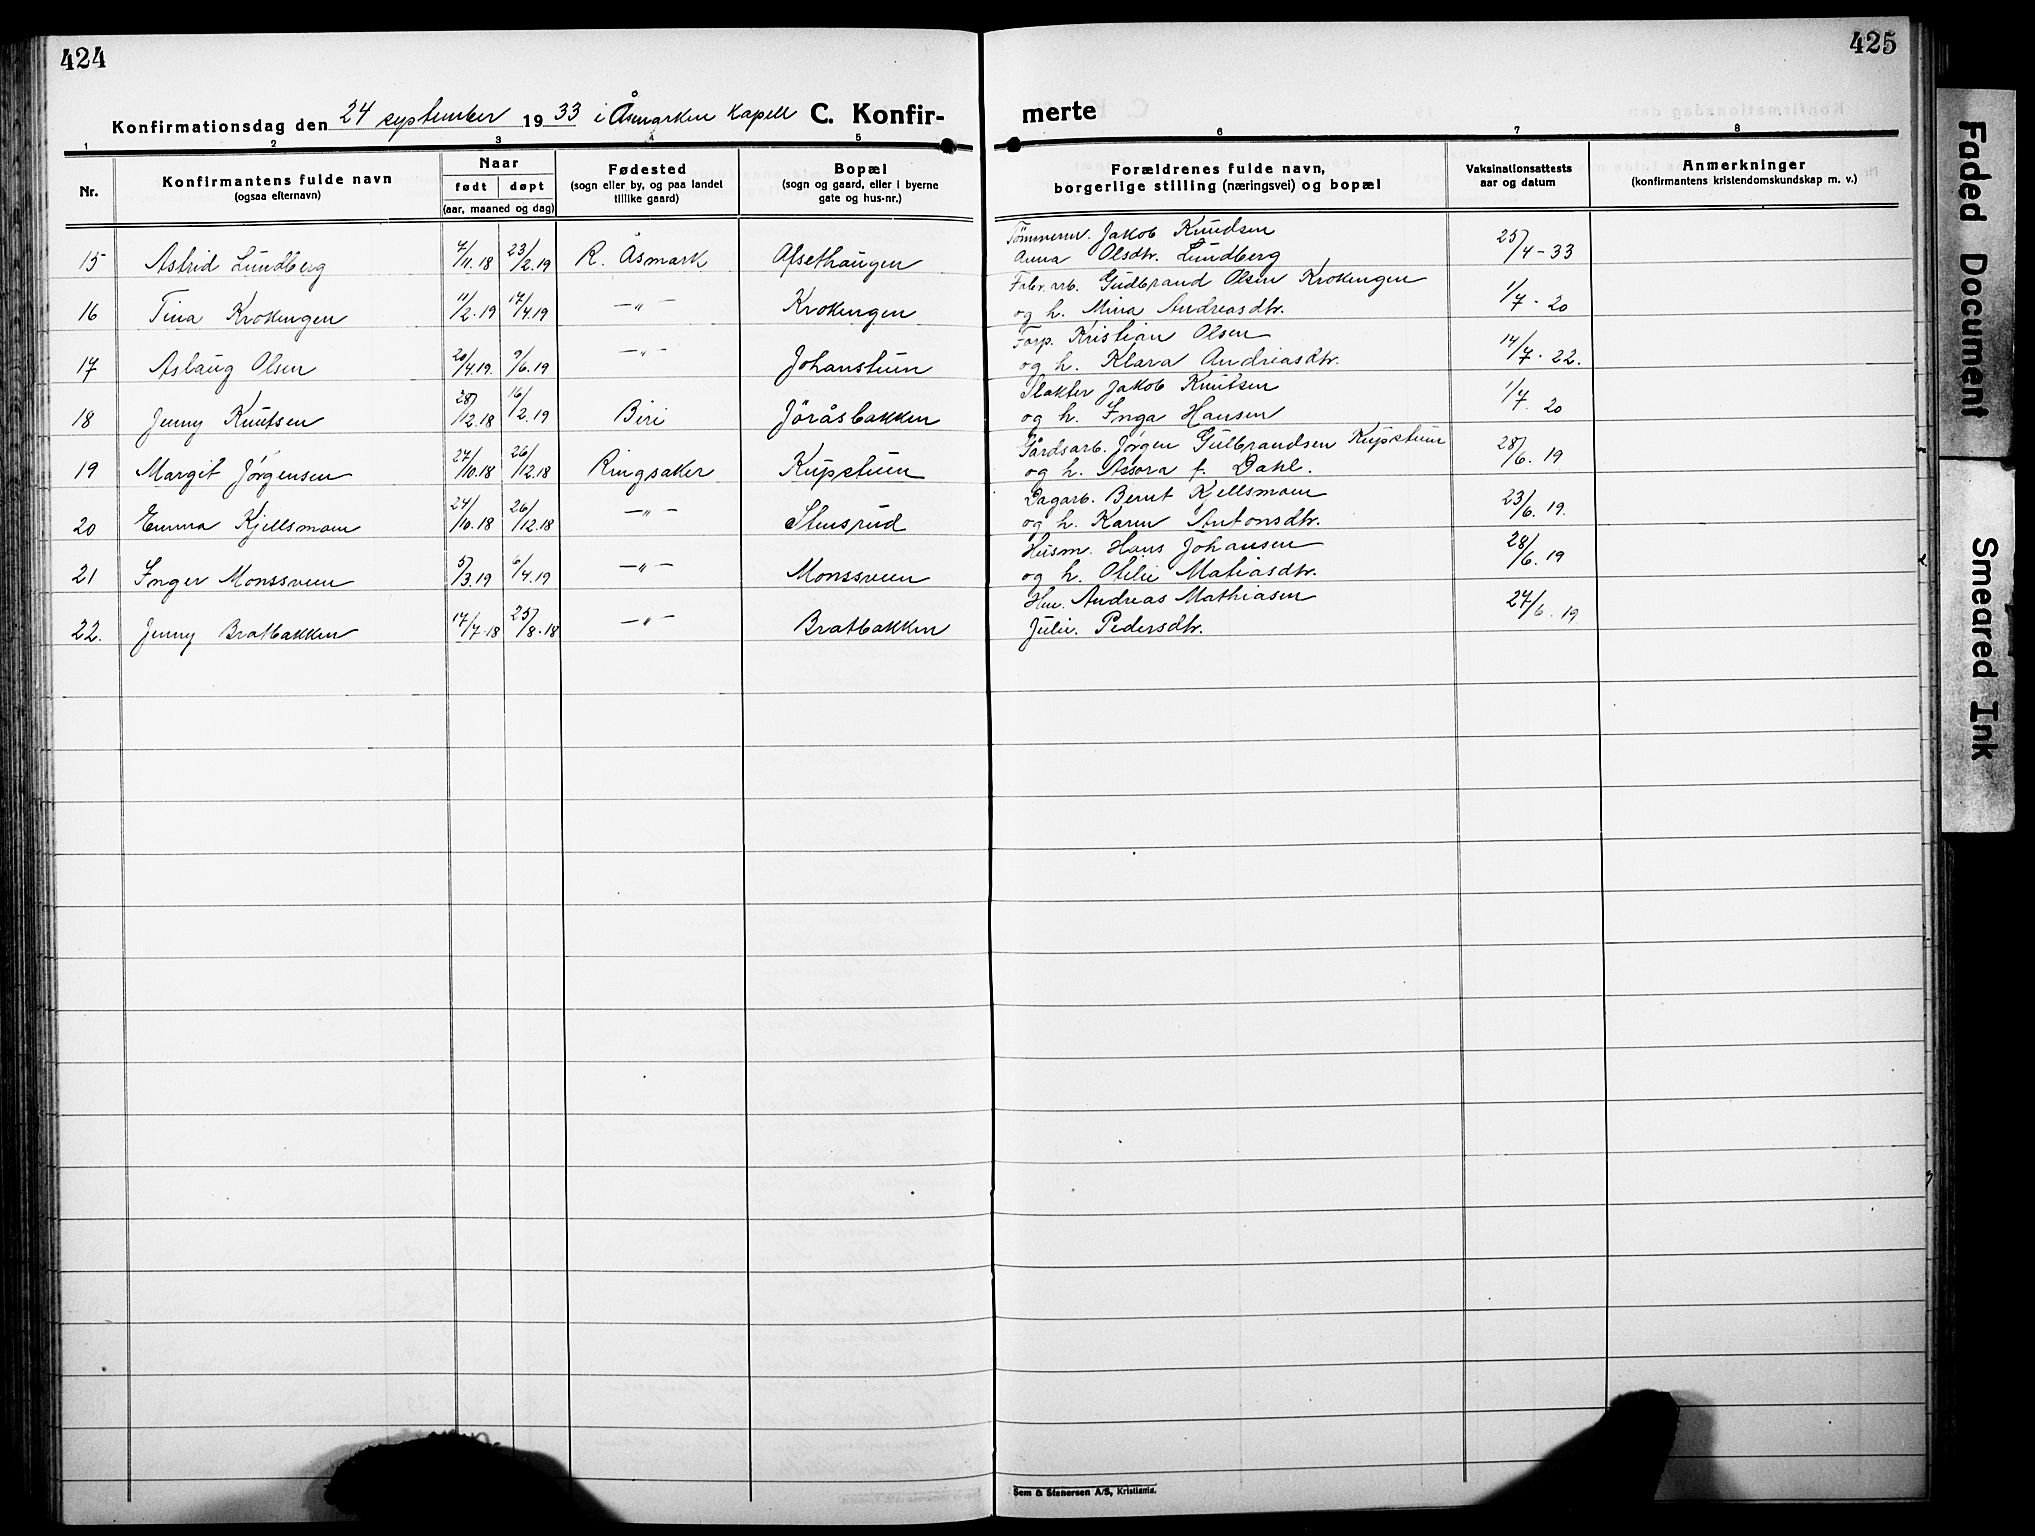 424
425
Konfirmationsdag den 24 september 1933 i Åsmarken Kapell C. Konfirmerte
1 2 3 4 5 6 7 8
Nr.
Konfirmantens fulde navn
(ogsaa efternavn)
Naar
født døpt
(aar, maaned og dag)
Fødested
(sogn eller by, og paa landet
tillike gaard)
Bopæl
(sogn og gaard, eller i byerne
gate og hus-nr.)
Forældrenes fulde navn,
borgerlige stilling (næringsvei) og bopæl
Vaksinationsattests
aar og datum
Anmerkninger
(konfirmantens kristendomskundskap m. v.)
Tømmerm. Jakob Knudsen
15 Astrid Lundberg 7/11.18 23/2.19 R. Åsmark Afsethaugen Anna Olsdtr. Lundberg 25/4-33
Fabr. arb. Gudbrand Olsen Krokengen
16 Tina Krokengen 11/2.19 17/4.19 —"— Krokengen og h. Mina Andreasdtr. 1/7-20
Forp. Kristian Olsen
17 Aslaug Olsen 20/4.19. 9/6.19 —"— Johanstuen og h. Klara Andreasdtr. 14/7-22.
Slakter Jakob Knutsen
18 Jenny Knutsen 28/12.18 16/2.19 Biri Jöråsbakken og h. Inga Hansen 1/7. 20
Gårdsarb. Jørgen Gulbrandsen Kupstuen
19 Margit Jörgensen 27/10.18 26/12.18 Ringsaker Kupstuen og h. Assora f. Dahl. 28/6. 19
Dagarb. Bernt Kjellsmoen
20 Emma Kjellsmoen 24/10.18 26/12.18 —"— Stensrud og h. Karen Antonsdtr. 23/6. 19.
Husm. Hans Johansen
21 Inger Monssveen 5/3.19 6/4.19 —"— Monssveen og h. Otilie Matiasdtr. 28/6. 19
Andreas Mathiasen
22. Jenny Bratbakken 17/7.18 25/8.18 —"— Bratbakken Julie. Pedersdtr. 27/6. 19
Sem & Stenersen A/S, Kristiania.
Faded Document
Smeared Ink